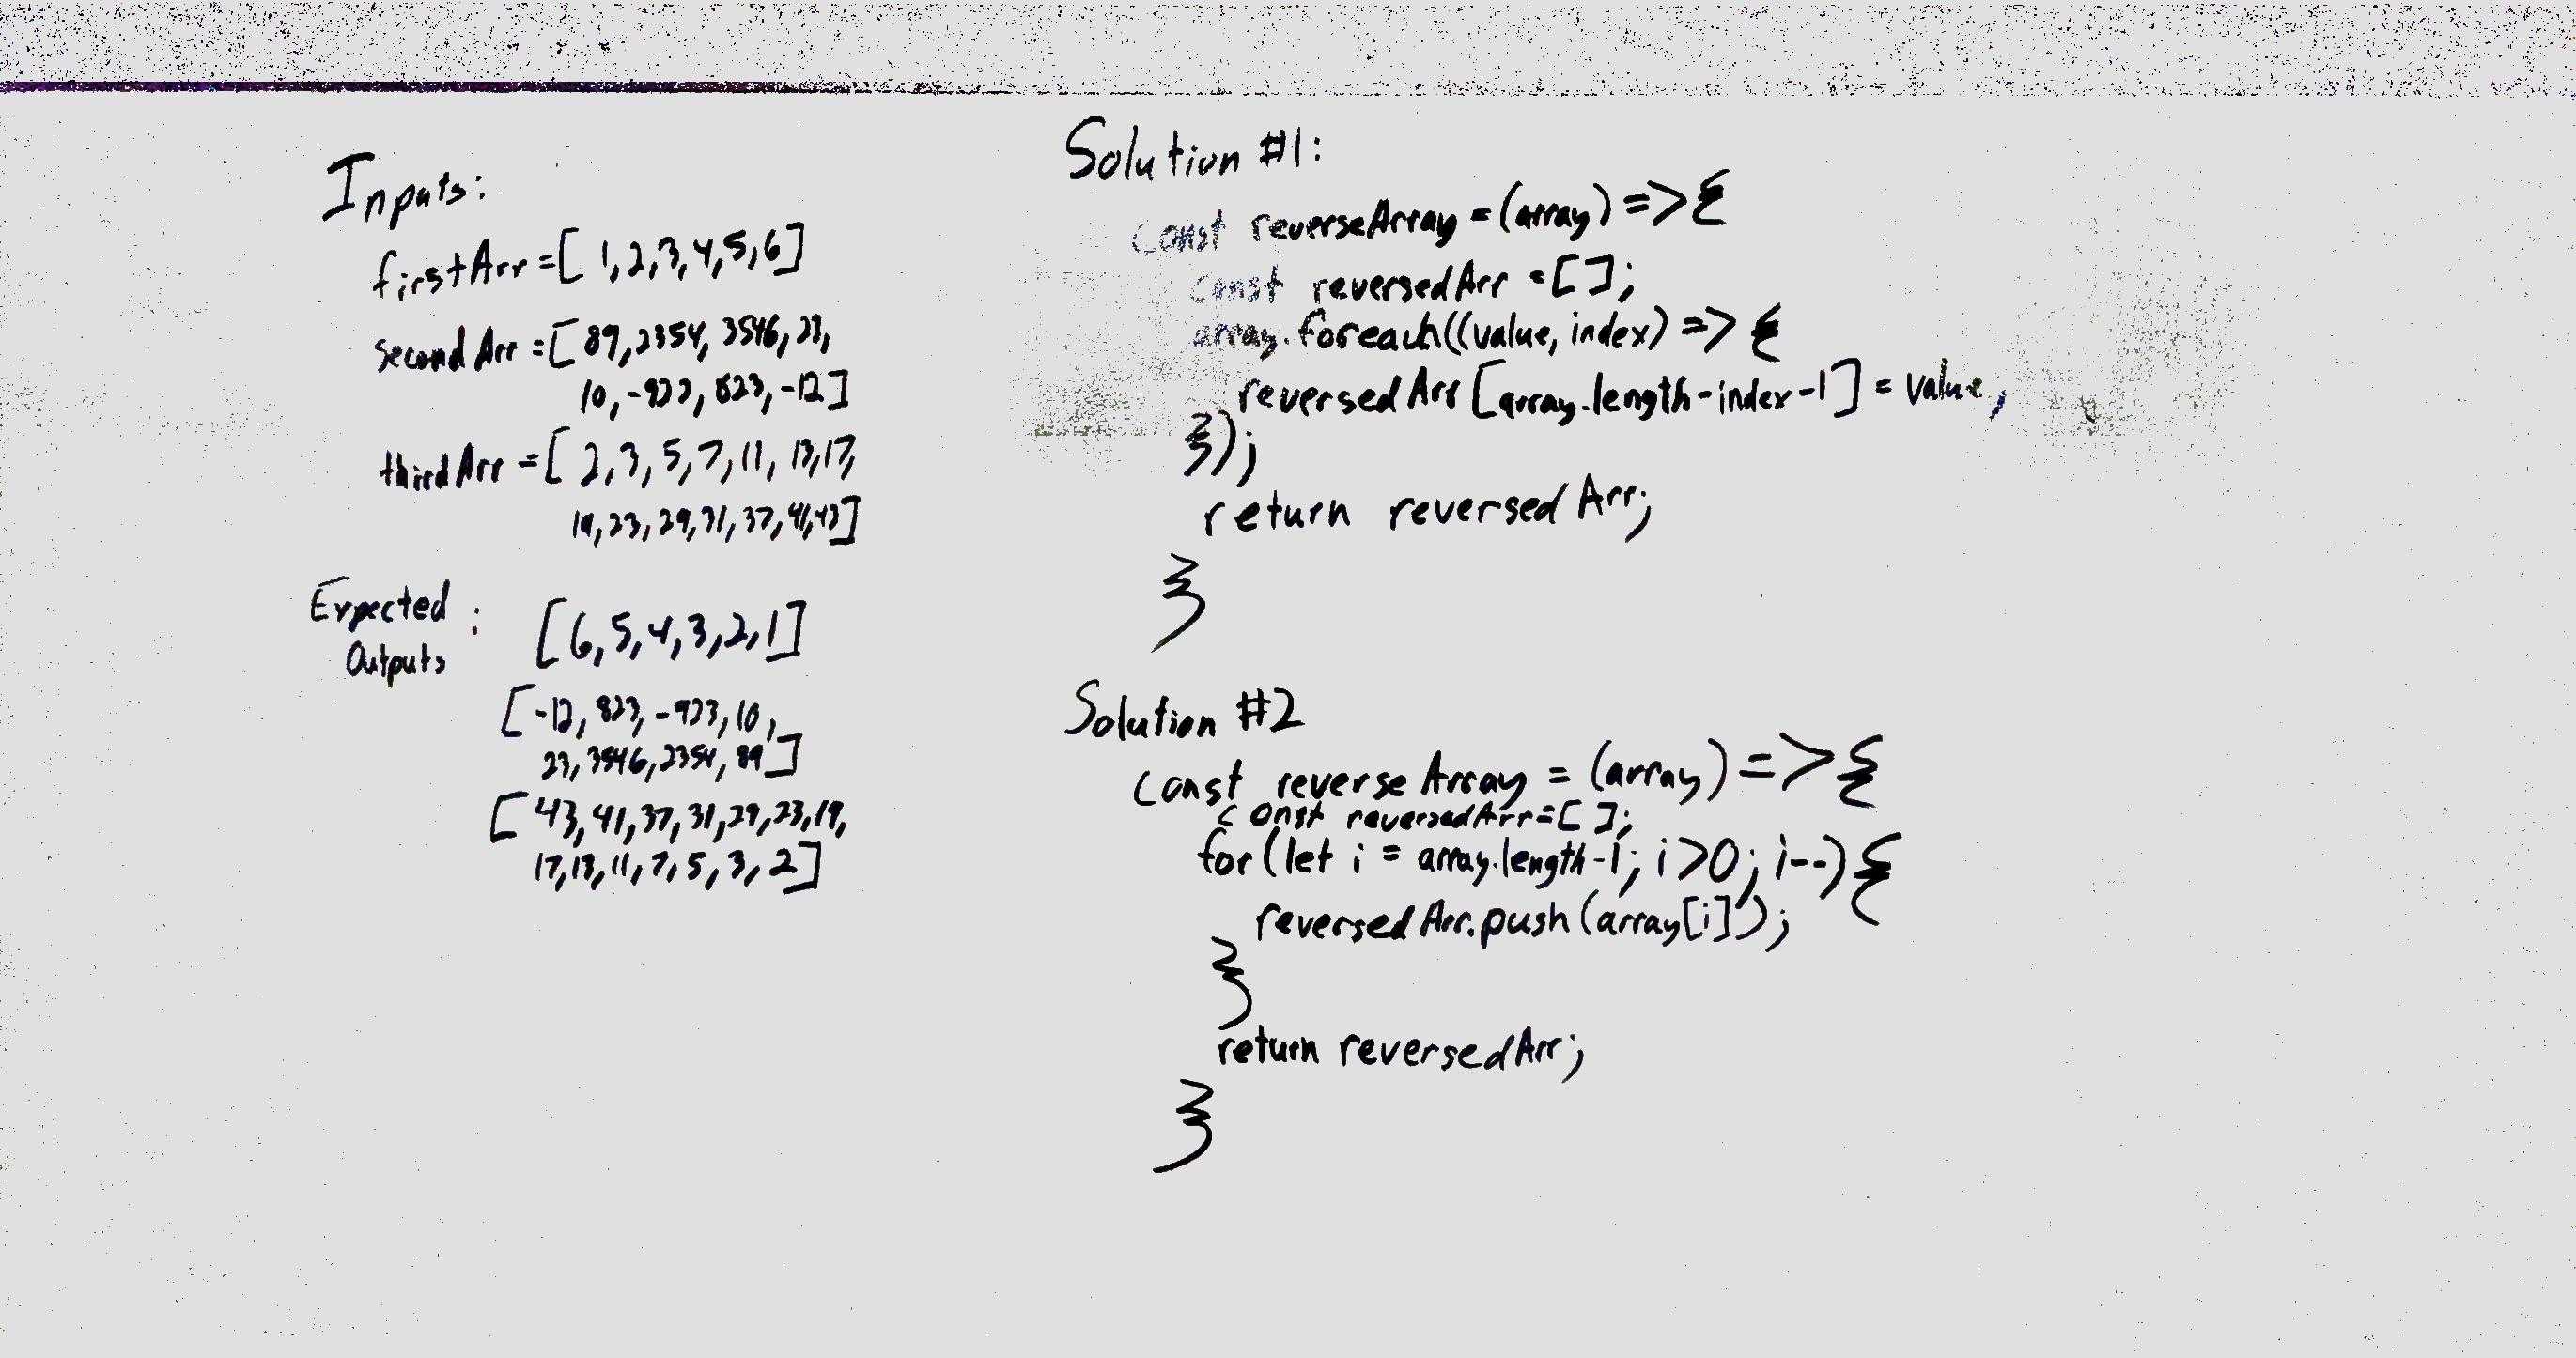 Inputs:
firstArr = [ 1,2,3,4,5,6]
secondArr = [ 89,2354, 3546, 23,
10, -923, 823, -12]
thirdArr = [ 2,3,5,7,11, 13,17,
19,23,29,31,37,41,43]
Expected
Outputs :
[6,5,4,3,2,1]
[-12, 823, -923, 10,
23, 3546, 2354, 89]
[43,41,37,31,29,23,19,
17,13,11,7,5,3,2]
Solution #1:
const reverseArray = (array) => {
const reversedArr = [];
array.foreach((value, index) => {
reversedArr [array.length-index-1] = value;
});
return reversedArr;
}
Solution #2
const reverseArray = (array) => {
const reversedArr = [];
for (let i = array.length-1; i>0; i--) {
reversedArr.push(array[i]);
}
return reversedArr;
}